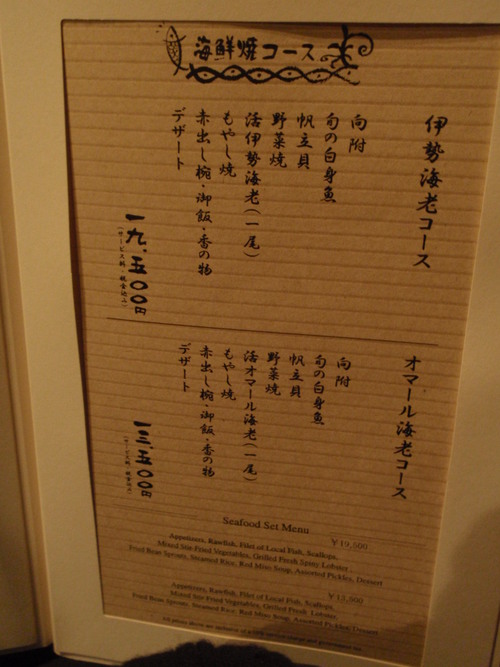 海鮮焼コース
伊勢海老コース
向附
旬の白身魚
帆立貝
野菜焼
活伊勢海老(一尾)
もやし焼
赤出し椀・御飯・香の物
デザート
一九、五〇〇円
(サービス料・税金込み)
オマール海老コース
向附
旬の白身魚
帆立貝
野菜焼
活オマール海老(一尾)
もやし焼
赤出し椀・御飯・香の物
デザート
一三、五〇〇円
(サービス料・税金込み)
Seafood Set Menu
¥19,500
Appetizers, Rawfish, Filet of Local Fish, Scallops,
Mixed Stir-Fried Vegetables, Grilled Fresh Spiny Lobster
Fried Bean Sprouts, Steamed Rice, Red Miso Soup, Assorted Pickles, Dessert
¥13,500
Appetizers, Rawfish, Filet of Local Fish, Scallops,
Mixed Stir-Fried Vegetables, Grilled Fresh Lobster,
Fried Bean Sprouts, Steamed Rice, Red Miso Soup, Assorted Pickles, Dessert
All prices above are inclusive of service charge and government tax.